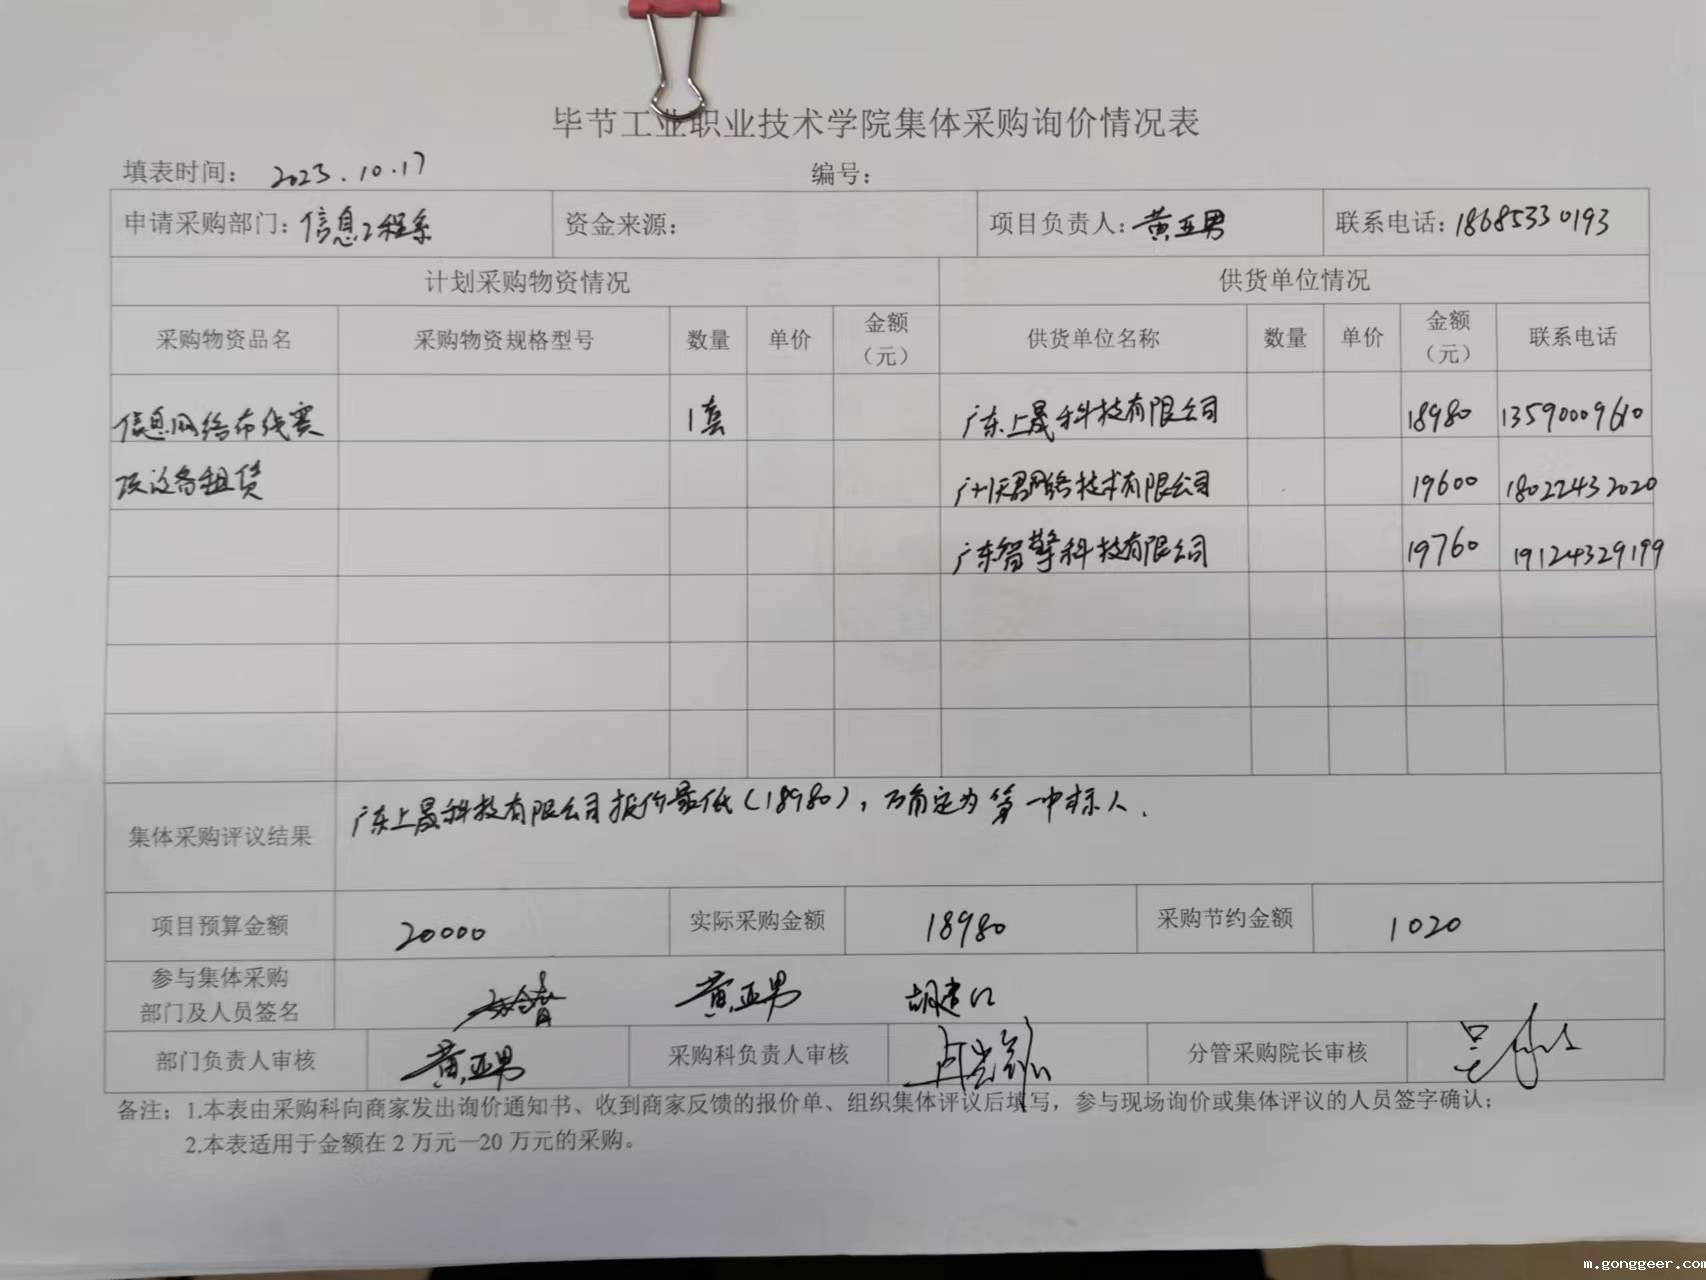 毕节工业职业技术学院集体采购询价情况表
填表时间： 2023.10.17 编号：
申请采购部门：信息工程系 资金来源： 项目负责人：黄亚男 联系电话：18685330193
计划采购物资情况 供货单位情况
采购物资品名 采购物资规格型号 数量 单价 金额（元） 供货单位名称 数量 单价 金额（元） 联系电话
信息网络布线赛 1套 广东上晟科技有限公司 18980 13590009610
项设备租赁 网络技术有限公司 19600 18022432020
广东智擎科技有限公司 19760 19124329199
集体采购评议结果 广东上晟科技有限公司报价最低（18980），确定为第一中标人.
项目预算金额 20000 实际采购金额 18980 采购节约金额 1020
参与集体采购
部门及人员签名 黄亚男
部门负责人审核 黄亚男 采购科负责人审核 分管采购院长审核
备注：1.本表由采购科向商家发出询价通知书、收到商家反馈的报价单、组织集体评议后填写，参与现场询价或集体评议的人员签字确认；
2.本表适用于金额在2万元—20万元的采购。
m.gonggeer.com